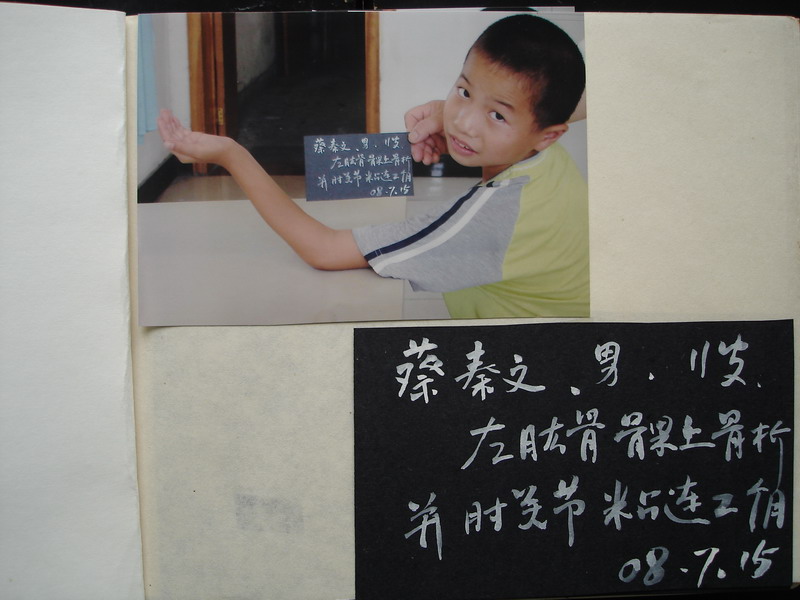 蔡秦文、男、11岁
左肱骨髁上骨折
并肘关节粘连二个月
08.7.15
蔡秦文、男、11岁、
左肱骨髁上骨折
并肘关节粘连二个月
08.7.15